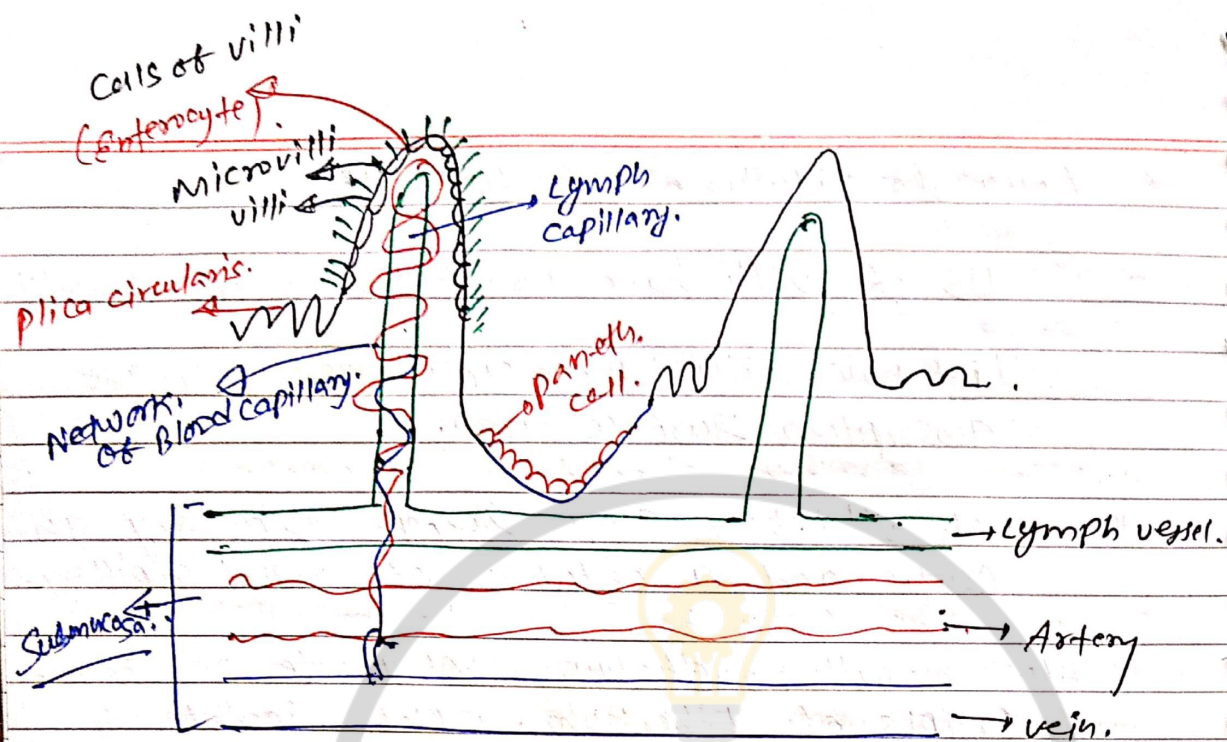 Cells of villi
(Enterocyte).
Microvilli
villi
Lymph
Capillary.
Plica circularis.
Network.
of Blood capillary.
paneth.
cell.
Lymph vessel.
Submucosa.
Artery
vein.